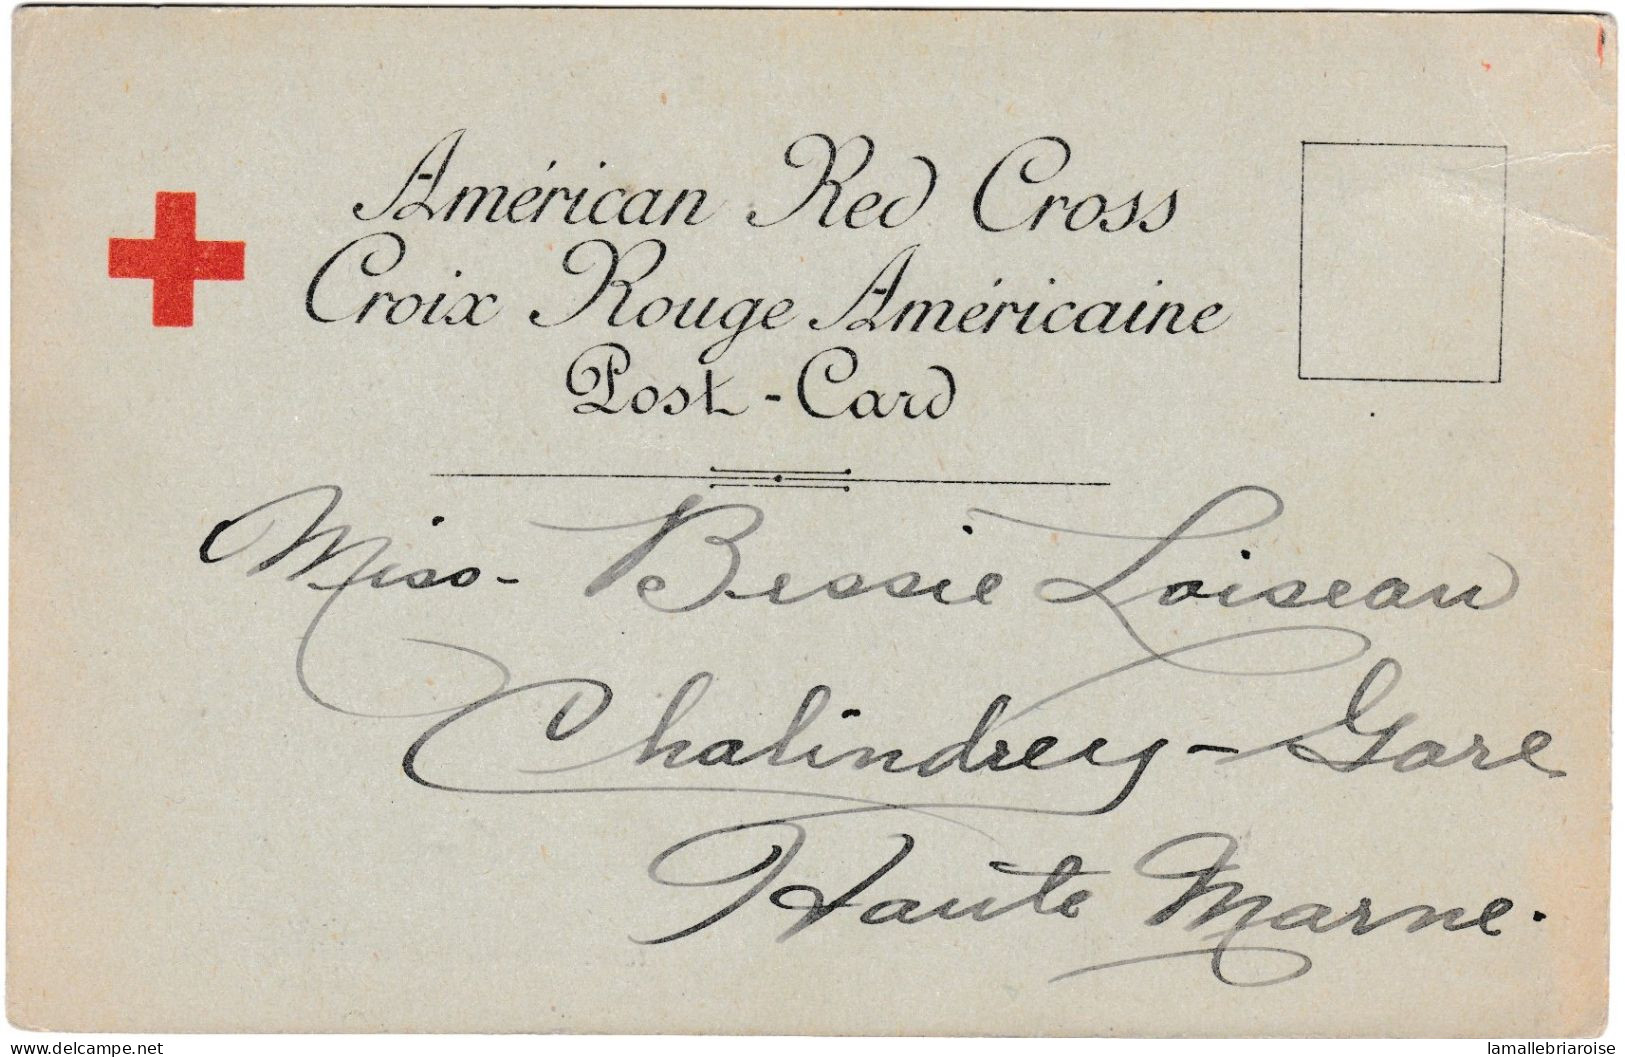 Américan Red Cross
Croix Rouge Américaine
Post-Card
Miss- Bessie Loiseau
Chalindrey-Gare
Haute Marne.
www.delcampe.net
lamallebriaroise